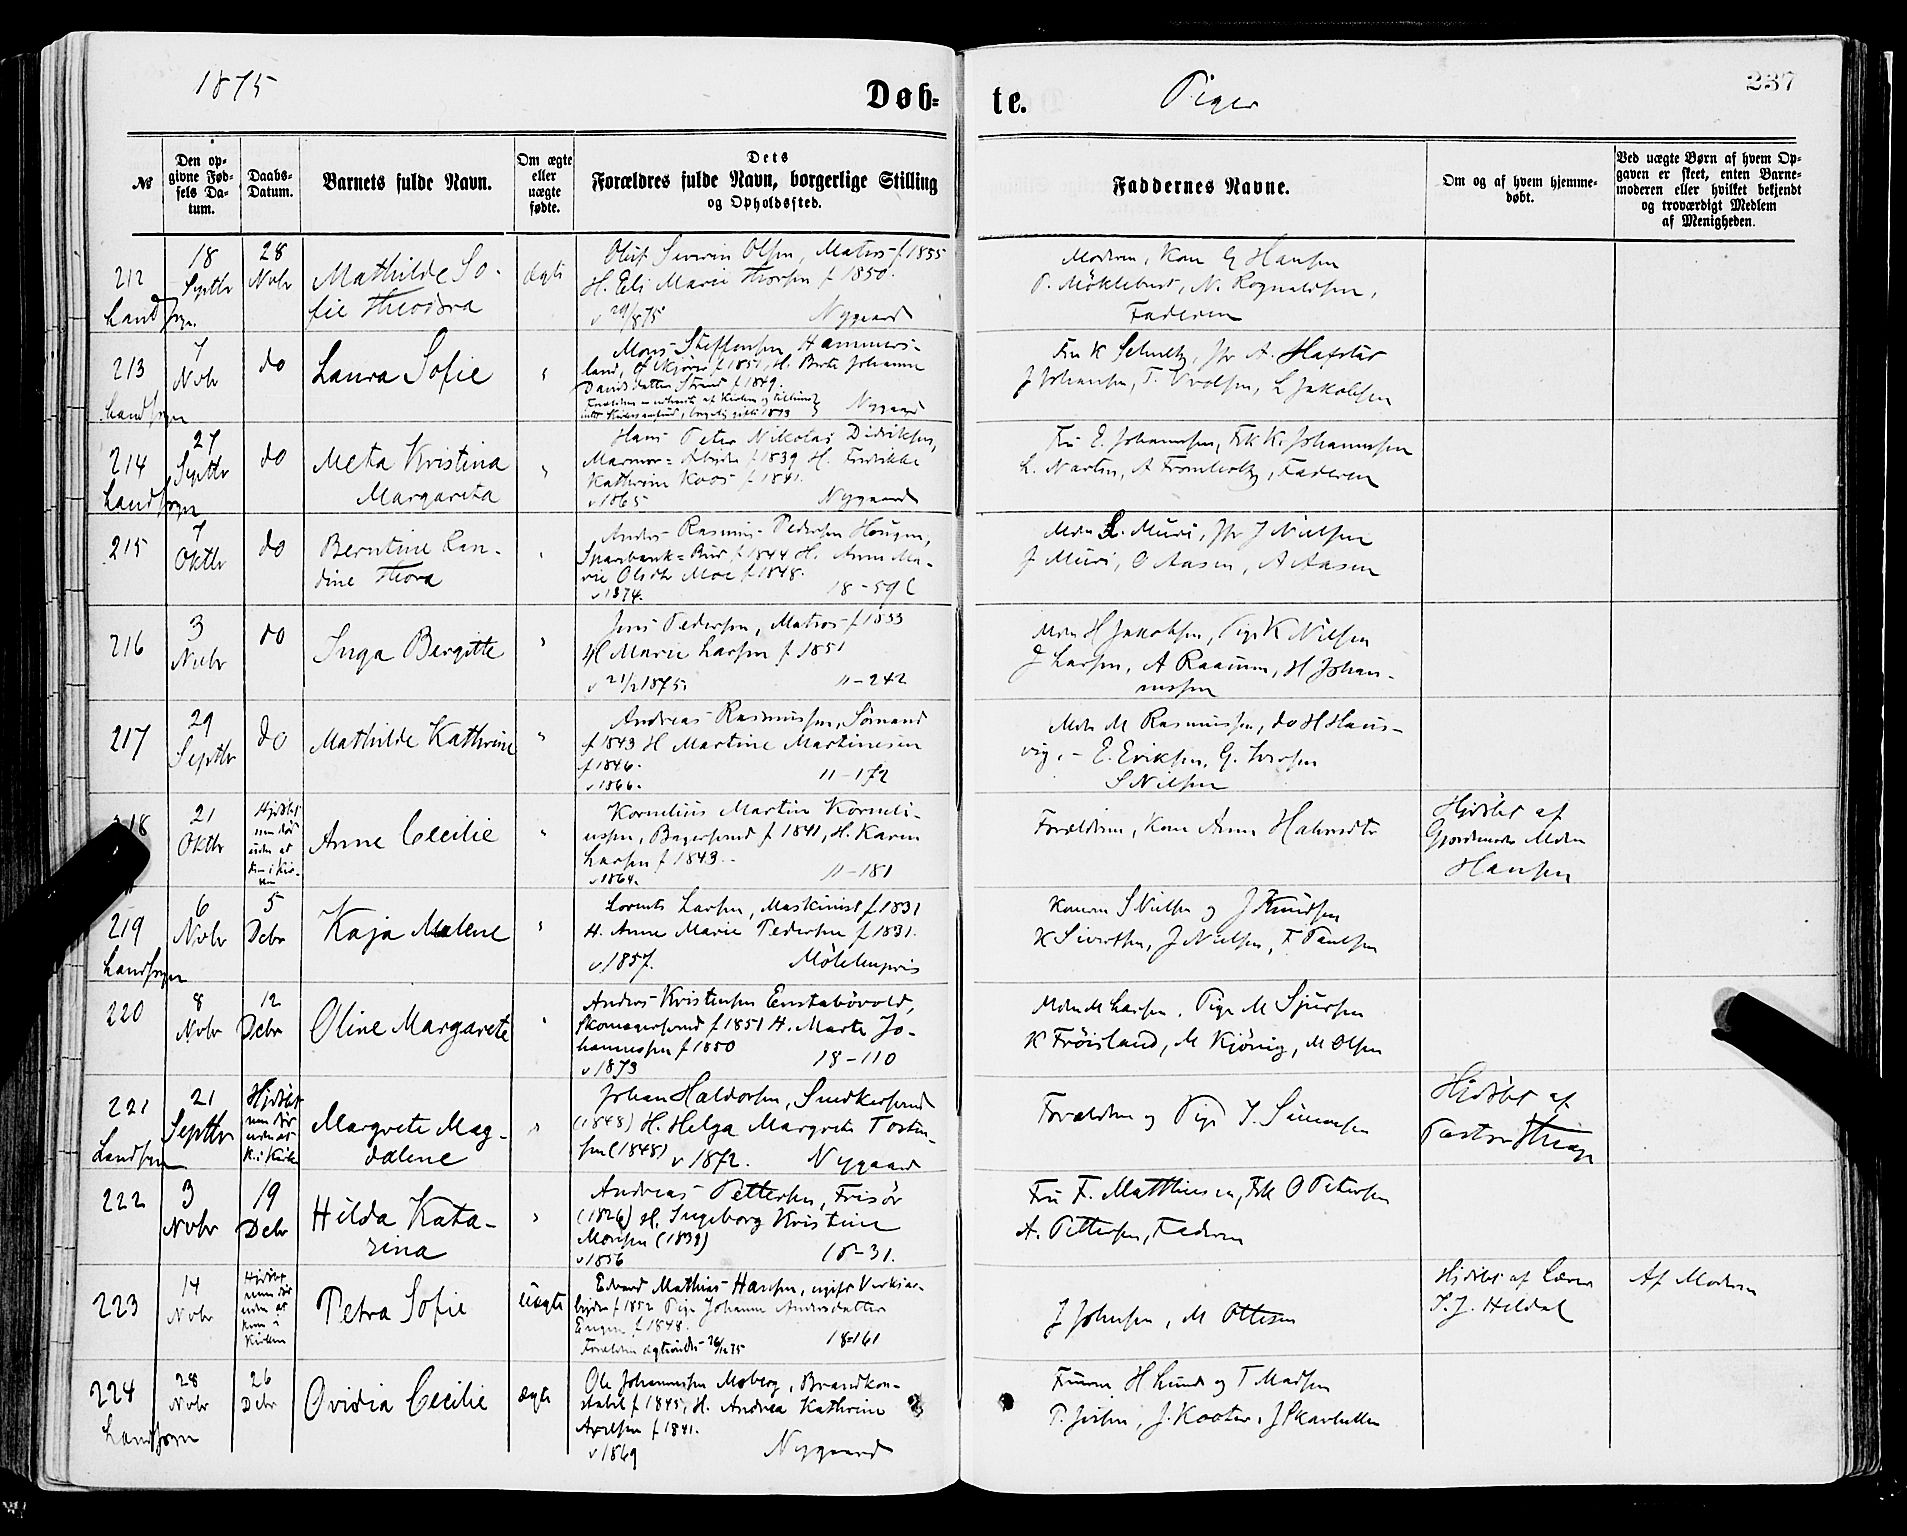 1875
Døb-
te. Piger
237
№
Den opgivne Fødsels Datum.
Daabs-Datum.
Barnets fulde Navn.
Om ægte eller uægte fødte.
Dets Forældres fulde Navn, borgerlige Stilling og Opholdssted.
Faddernes Navne.
Om og af hvem hjemmedøbt.
Ved uægte Børn af hvem Opgaven er skeet, enten Barnemoderen eller hvilket bekjendt og troværdigt Medlem af Menigheden.
212
Landsogn
18
Septbr
28
Novbr
Mathilde So-
fie Theodora
ægte
Oluf Severin Olsen, Matros f 1855
H. Eli Marie Thorsen f 1850.
v 29/8 75 Nygaard
Moderen, Kone G Hansen
P. Möklebust, N. Rognaldsen,
Faderen
213
Landsogn
7
Novbr
do
Laura Sofie
"
Mons Steffensen Hammers-
land, f 1851, H. Berte Johanne
Davidsdatter Strand f 1849.
Nygaard
Fru K Schultz, Jfr A. Hafstad
J Johansen, T.
L Jakobsen
214
Landsogn
27
Septbr
do
Meta Kristina
Margareta
"
Hans Peter Nikolai Didriksen,
Marmor-Arbeider f 1839 H. Fredrikke
Kathrine Koos f 1841.
v 1865 Nygaard
Fru E. Johannesen, Frk K. Johannesen
L. Martin, A Fromholtz, Faderen
215
7
Oktbr
do
Berntine Ran-
dine Thora
"
Anders Rasmus Pedersen Hougen,
Sparebank-Bud f 1844 H. Anne Ma-
rie Olsdtr Moe f 1848.
v 1874. 18-59 C
Mdm L. Muri, Jfr J Nielsen
J Muri, O Aasen, A Aasen
216
3
Novbr
do
Inga Bergitte
"
Jens Pedersen, Matros f 1833
H Marie Larsen f 1851
v 21/2 1875. 11-242
Mdm H Jakobsen, Pige K Nilsen
J Larsen, A Raaum, H Johan-
nessen
217
29
Septbr
do
Mathilde Kathrine
"
Andreas Rasmussen, Sömand
f 1843 H Martine Martinesen
f 1846.
v 1866. 11-172
Mdm M Rasmussen, do H Haus-
vig, - E. Eriksen, G. Iversen
S Nilsen
218
21
Oktbr
Hjdöbt
men dör
uden at
kom i Kir-
ken
Anne Cecilie
"
Kornelius Martin Korneli-
ussen, Bagersvend f 1841, H. Karen
Larsen f 1843.
v 1864. 11-181
Forældrene, Kone Anna Halvorsdtr
Hjdöbt af
Gjordemoder Mdm
Hansen
219
Landsogn
6
Novbr
5
Debr
Kaja Malene
"
Lorents Larsen, Maskinist f 1831
H. Anne Marie Pedersen f 1831.
v 1857. Möhlenpris
Konerne S Nielsen og J Knudsen
K Sivertsen, J Nielsen, F Paulsen
220
8
Novbr
12
Debr
Oline Margarete
"
Anders Kristensen Enstabövold,
Skomagersvend f 1851 H. Marte Jo-
hannessen f 1850
v 1873 18-110
Mdm M Larsen, Pige M Sjursen
K Fröisland, M Kjönig, M Olsen
221
Landsogn
21
Septbr
Hjdöbt
men dör
uden at
k. i Kirke
Margrete Mag-
dalene
"
Johan Haldorsen, Snedkersvend
(1848) H. Helga Margrete Tosten-
sen (1848) v 1872. Nygaard
Forældrene og Pige I. Simonsen
Hjdöbt af
Pastor
222
3
Novbr
19
Debr
Hilda Kata-
rina
"
Andreas Pettersen, Frisör
(1826) H. Ingeborg Kristine
Monsen (1832)
v 1856 18-31.
Fru F. Matthiesen, Frk O Petersen
A. Pettersen, Faderen
223
14
Novbr
Hjdöbt
men dör
uden at
kom i
Kirken
Petra Sofie
Uægte
Edvard Mathias Hansen, ugift Værksar-
beider f 1852 Pige Johanne Andersdatter
Engen f 1848.
Forældrene ægteviede 26/12 75 18-161
J Johnsen, M Ottesen
Hjdöbt af Lærer
S. J. Hildal
Af Moderen
224
Landsogn
28
Novbr
26
Debr
Ovidia Cecilie
ægte
Ole Johannesen Moberg, Brandkon-
stabel f 1845, H. Andrea Kathrine
Axelsen f 1841.
v 1869 Nygaard
Fruerne H Lund og T Madsen
P. Jersen, J. Kooter, J Skarholten